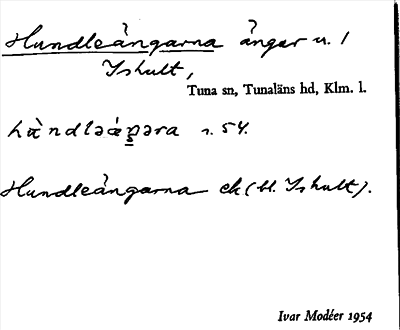 Hundleängarna ängar u. 1
Ishult,
Tuna sn, Tunaläns hd, Klm. l.
s. 54.
Hundleängarna ek (bl. Ishult).
Ivar Modéer 1954